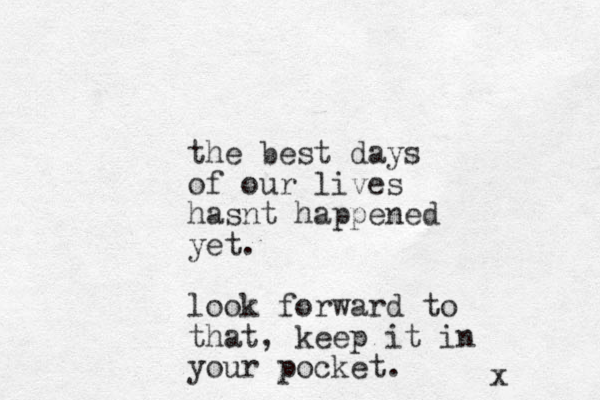 the best days
of our lives
hasnt happened
yet.
look forward to
that, keep it in
your pocket.
x